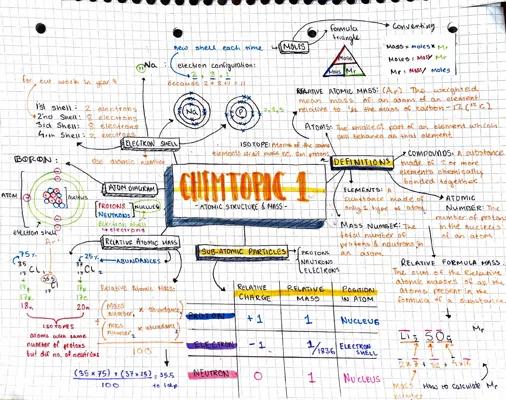 CHEM TOPIC 1
- ATOMIC STRUCTURE & MASS -
new shell each time
MOLES
formula
triangle
Converting
Mass
Moles
Mr
Mass = moles x Mr
Moles = mass / Mr
Mr = mass / moles
Na :
electron configuration:
2, 8, 1
because 2 + 8 + 1 = 11
for our work in year 9
1st shell: 2 electrons
2nd shell: 8 electrons
3rd shell: 8 electrons
4th shell:
electrons
ELECTRON SHELL
Use atomic number
Na
P
2,8,5
RELATIVE ATOMIC MASS: (Ar) The weighted
mean mass of an atom of an element
relative to 1/12 the mass of carbon-12
ATOMS: The smallest part of an element which
still behaves as that element
ISOTOPE: Atoms of the same
DEFINITIONS
COMPOUNDS: a substance
made of 2 or more
elements chemically
bonded together
ELEMENTS: a
substance made of
only 1 type of atom
ATOMIC
NUMBER: The
number of protons
in the nucleus
of an atom
MASS NUMBER: The
total number of
protons & neutrons in
an atom
RELATIVE FORMULA MASS:
The sum of the relative
atomic masses of all the
atoms present in the
formula of a substance
Mr
How to calculate Mr
Mass
number
BORON:
ATOM
nucleus
electron shell
ATOM DIAGRAM
PROTONS
NEUTRONS
NUCLEUS
electron shell
electrons
RELATIVE ATOMIC MASS
Ar
75%
25%
ABUNDANCES
35 Cl
37 Cl
17p
17e
18n
17p
17e
20n
ISOTOPES
atoms with same
number of protons
but dif no. of neutrons
RELATIVE ATOMIC MASS:
(Mass number 1 x abundance)
+
(Mass number 2 x abundance)
100
(35 x 75) + (37 x 25) = 35.5
100
to 1 dp
SUB-ATOMIC PARTICLES
PROTONS
NEUTRONS
ELECTRONS
RELATIVE CHARGE
RELATIVE MASS
POSITION IN ATOM
PROTON +1 1 NUCLEUS
ELECTRON -1 1/1836 ELECTRON SHELL
NEUTRON 0 1 NUCLEUS